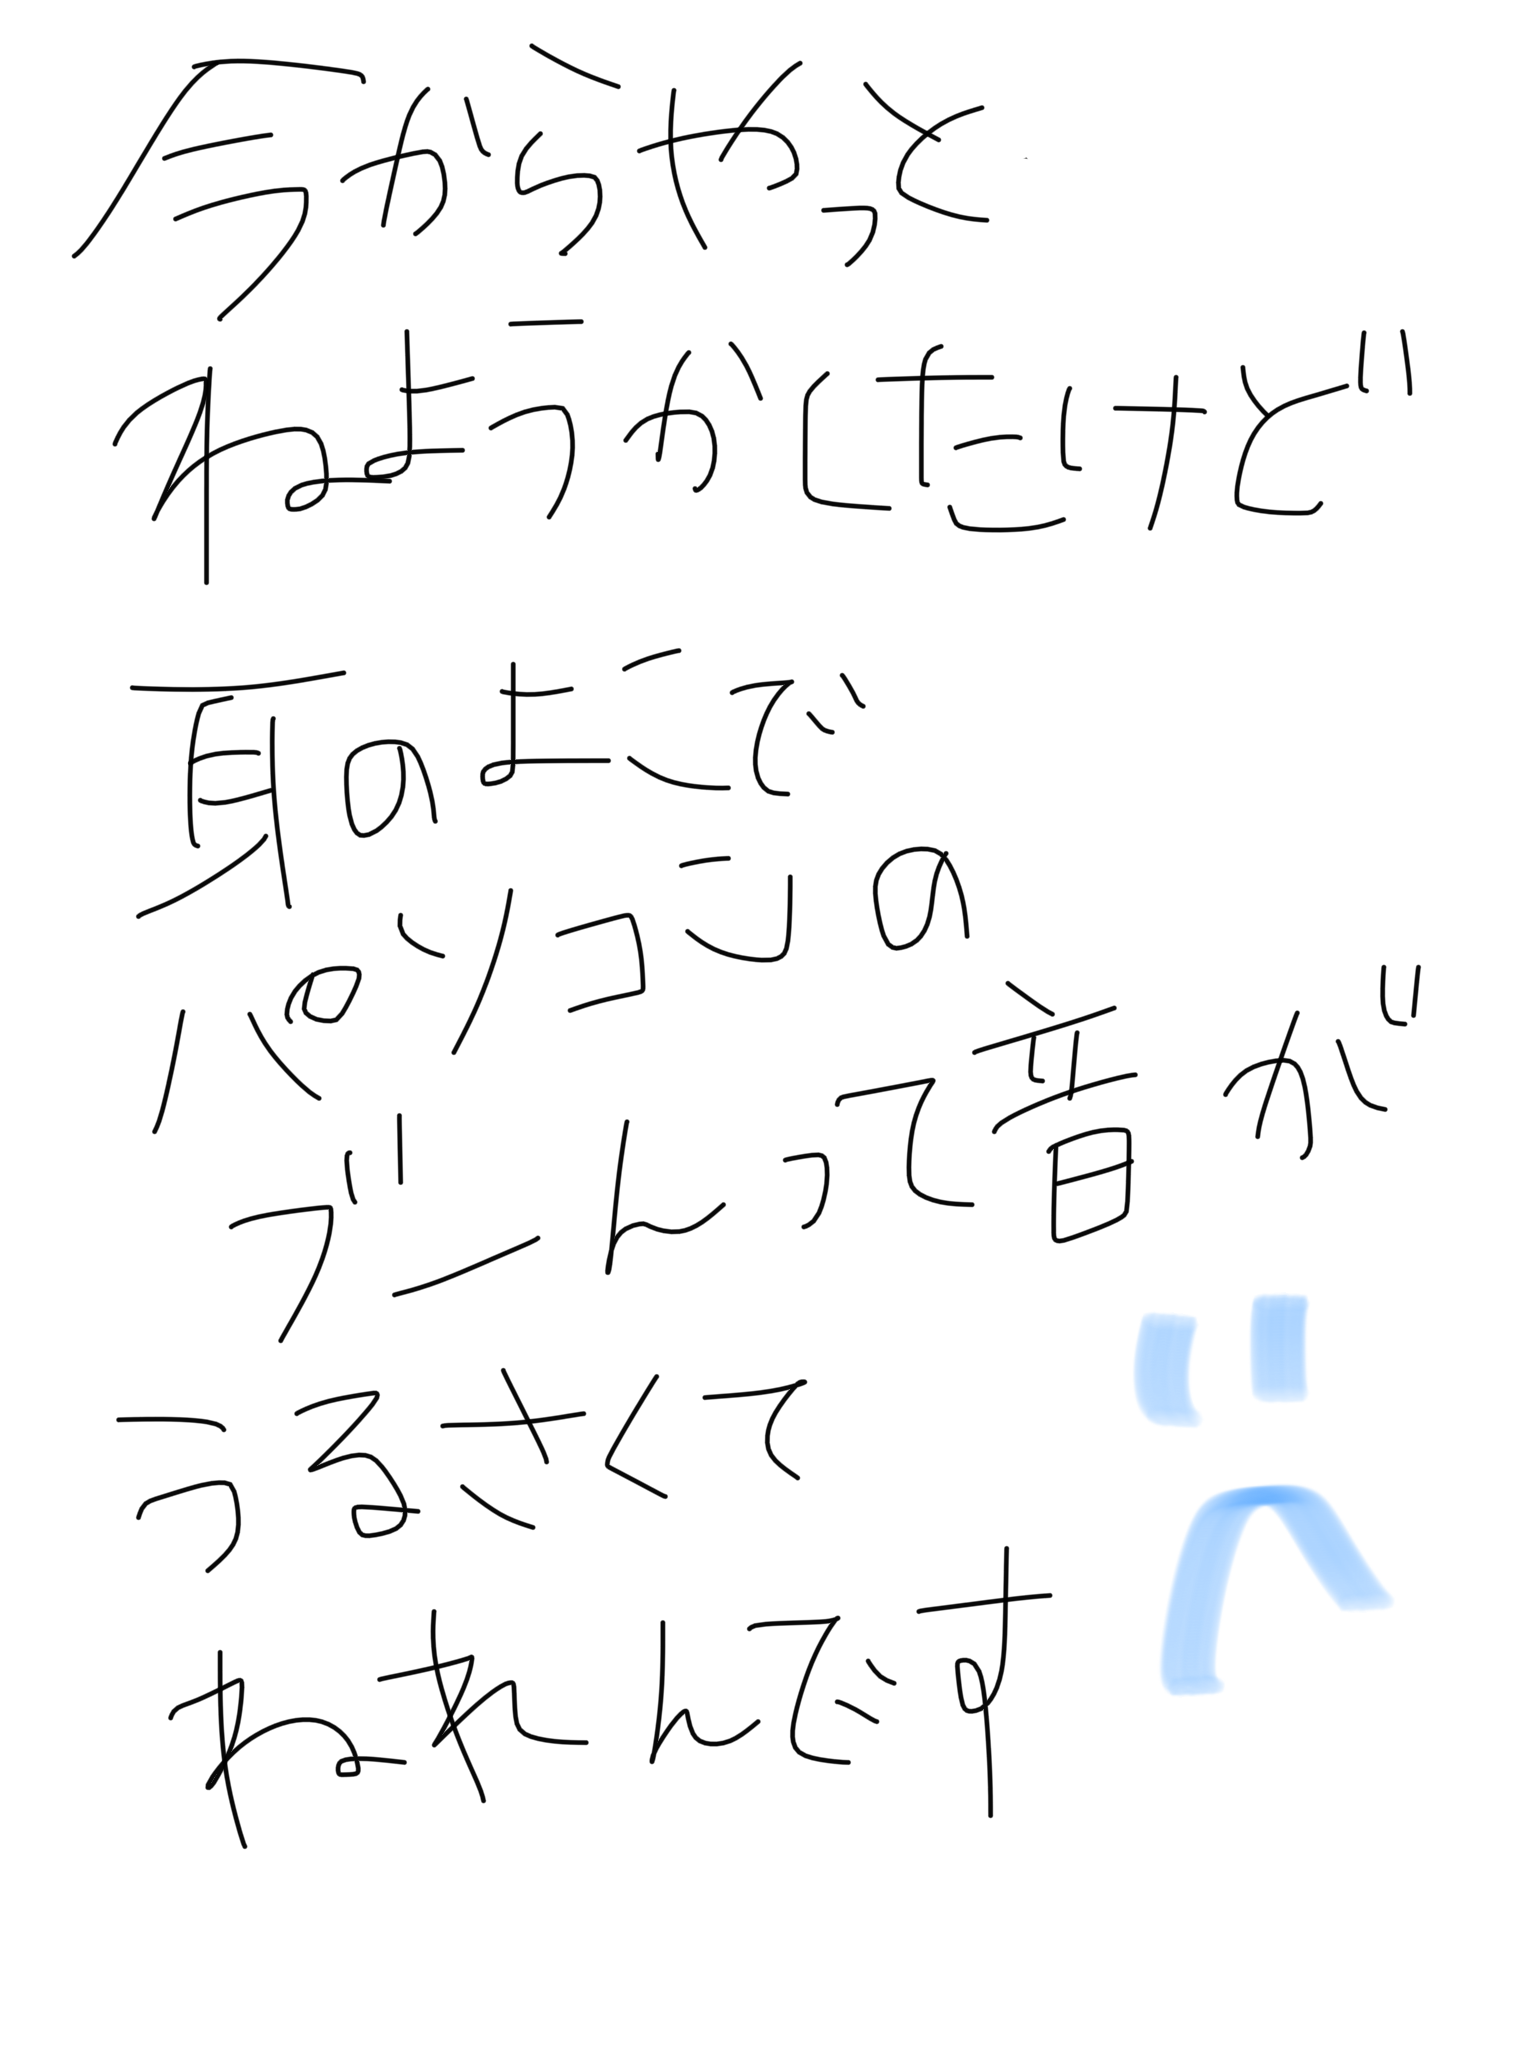 今からやっと
ねようかしたけど
耳のよこで
パソコンの
ブーんって音が
うるさくて
ねれんです